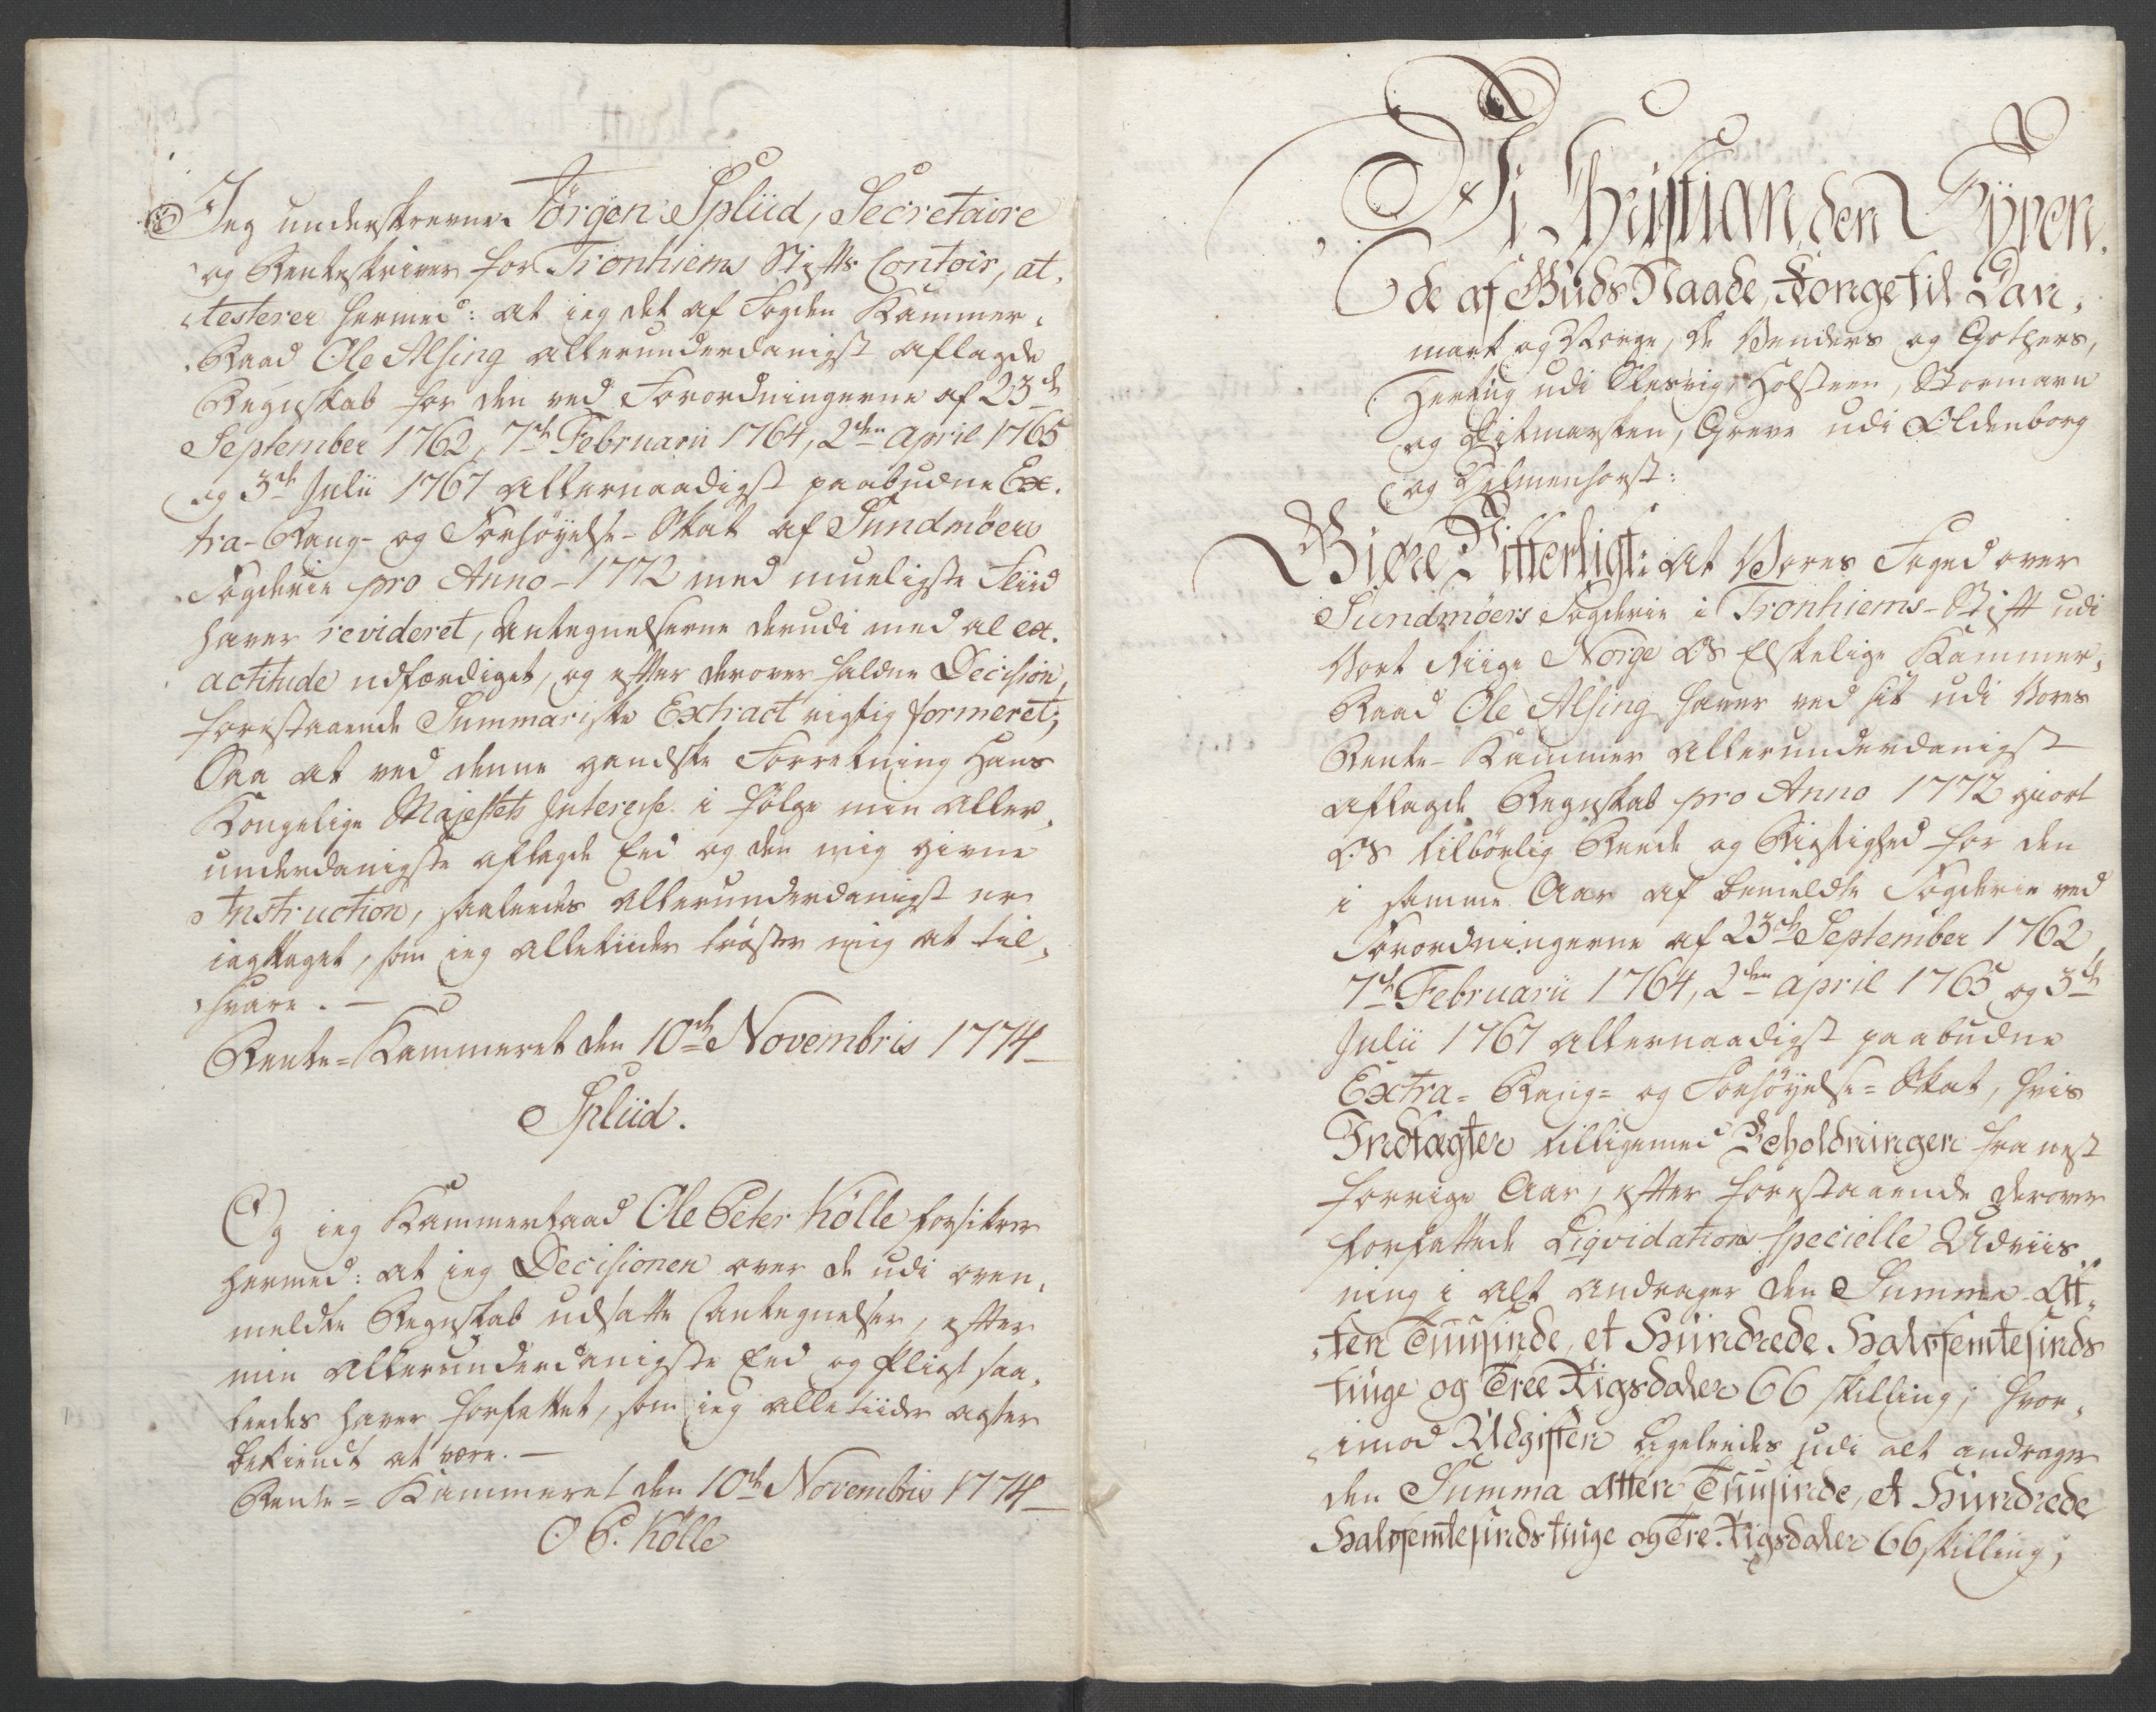 Jeg underskrevne Jörgen Spliid, Secretaire
og Renteskriver for Tronhiems Stifts Contoir, at-
testerer hermed: at jeg det af Fogden Kammer-
Raad Ole Alsing allerunderdanigst aflagde
Regnskab for den ved Forordningerne af 23de
September 1762, 7de Februarii 1764, 2den April 1765
og 3de Julii 1767 allernaadigst paabudne Ex-
tra- Rang- og Forhöyelse-Skat af Sundmöers
Fogderie pro Anno 1772 med mueligste Fliid
haver revideret, Antegnelserne derudi med al ex-
actitude udfærdiget, og efter derover faldne Decision,
forestaaende Summariske Extract rigtig formeret;
Saa at ved denne gandske Forretning Hans
Kongelige Majestets Interesse i fölge min aller-
underdanigste aflagde Eed og den mig givne
Instruction, saaledes allerunderdanigst er
iagttaget, som jeg alletiider tröster mig at til-
svare. —
Rente-Kammeret den 10de Novembris 1774
Spliid.
Og jeg Kammerraad Ole Peter Kölle forsikrer
hermed: at jeg Decisionen over de udi oven-
meldte Regnskab udsatte Antegnelser, efter
min allerunderdanigste Eed og Pligt saa-
ledes haver forfattet, som jeg alletiider agter
bekiendt at være. —
Rente-Kammeret den 10de Novembris 1774
O P. Kölle
Vi Christian den Syven-
de af Guds Naade, Konge til Dan-
mark og Norge, de Venders og Gothers,
Hertug udi Slesvig, Holsteen, Stormarn
og Ditmarsken, Greve udi Oldenborg
og Delmenhorst:
Giöre Vitterligt: At Vores Foged over
Sundmöers Fogderie i Tronhiems-Stift udi
Vort Riige Norge Os Elskelige Kammer-
Raad Ole Alsing haver ved sit udi Vores
Rente-Kammer allerunderdanigst
aflagde Regnskab pro Anno 1772 giort
Os tilbörlig Reede og Rigtighed for den
i samme Aar af bemeldte Fogderie ved
Forordningerne af 23de September 1762,
7de Februarii 1764, 2den April 1765 og 3de
Julii 1767 allernaadigst paabudne
Extra- Rang- og Forhöyelse-Skat, hvis
Indtægter tilligemed Beholdningen fra nest
forrige Aar, efter forestaaende derover
forfattede Liqvidations specielle Udviis-
ning i alt andrager den Summa Att-
ten Tuusinde, et Hundrede Halvfemtesinds
tiuge og Tree Rigsdaler 66 skilling; hvor-
imod Udgiften ligeleedes udi alt andrager
den Summa Atten Tuusinde, et Hundrede
Halvfemtesindstiuge og Tre Rigsdaler 66 skilling;